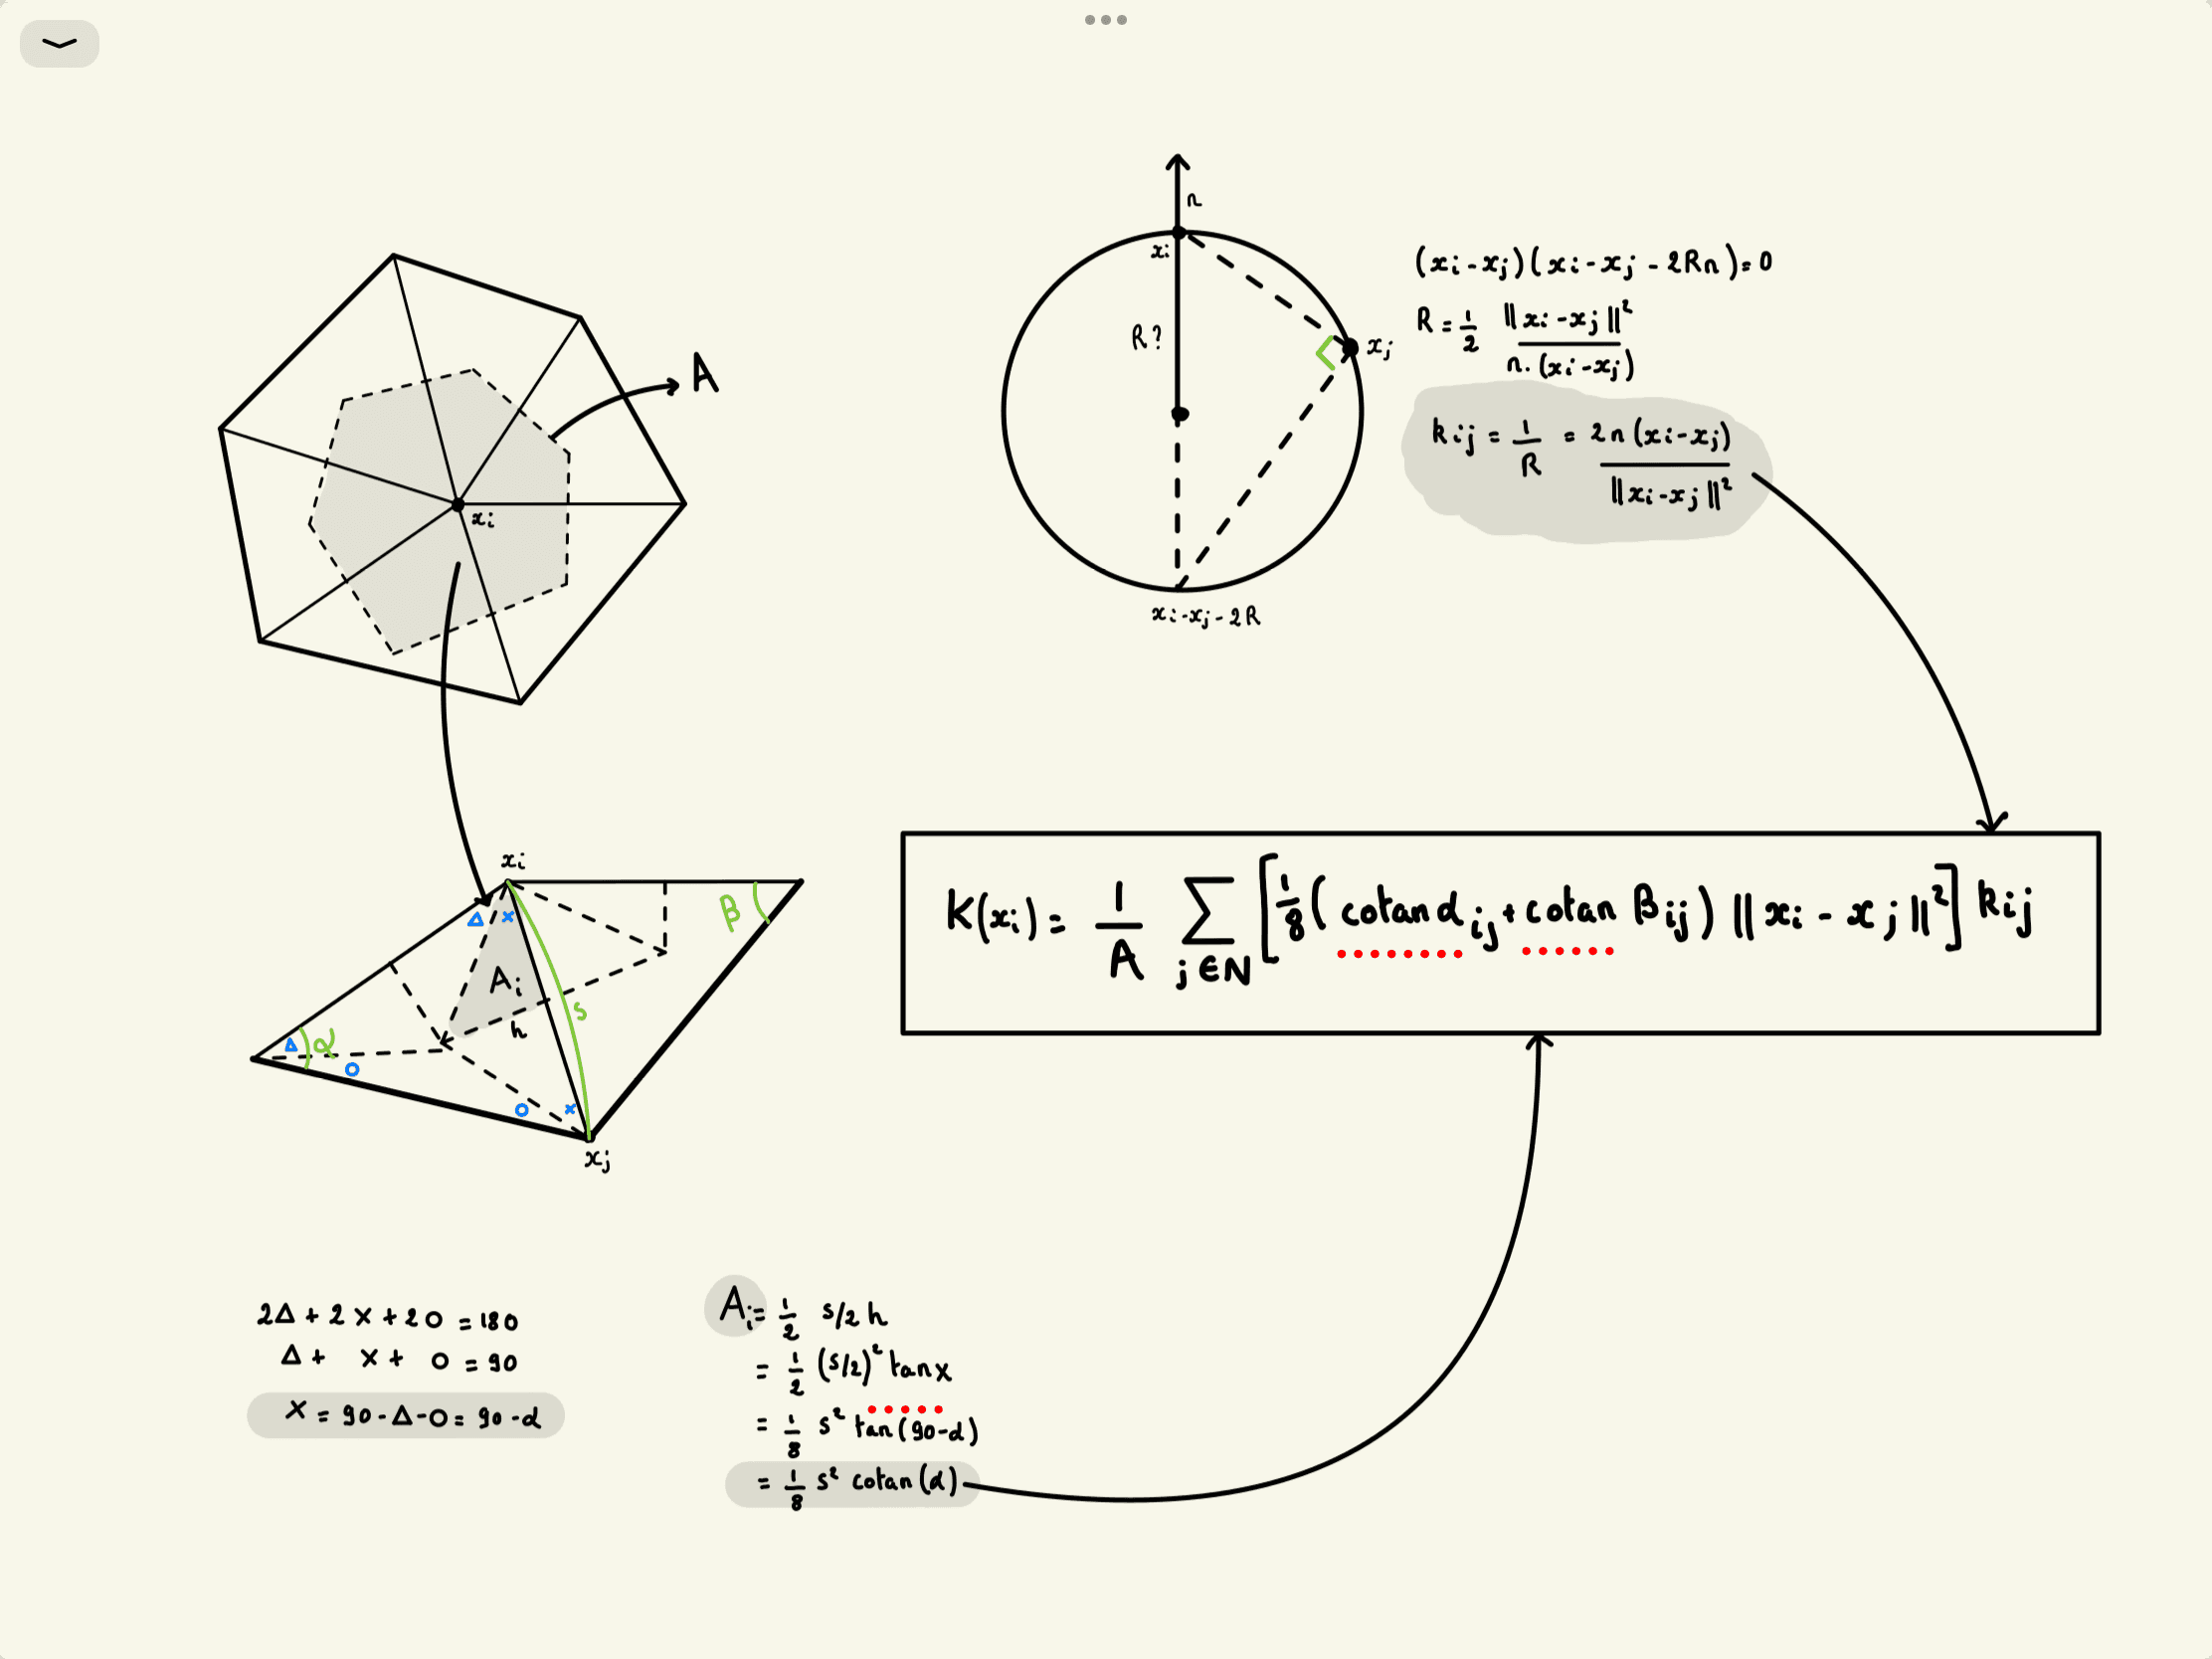 A
xi
n
xi
R?
xj
xi-xj-2R
(xi-xj)(xi-xj-2Rn)=0
R=1/2 ||xi-xj||²/n.(xi-xj)
kij=1/R=2n(xi-xj)/||xi-xj||²
xi
Δ x
β
Ai
s
h
Δ α
o
o x
xj
K(xi)=1/A Σ j∈N [1/8(cotanαij+cotanβij)||xi-xj||²]kij
2Δ+2x+2o=180
Δ+x+o=90
x=90-Δ-o=90-α
Ai=1/2 s/2 h
=1/2(s/2)²tanx
=1/8 s² tan(90-α)
=1/8 s² cotan(α)